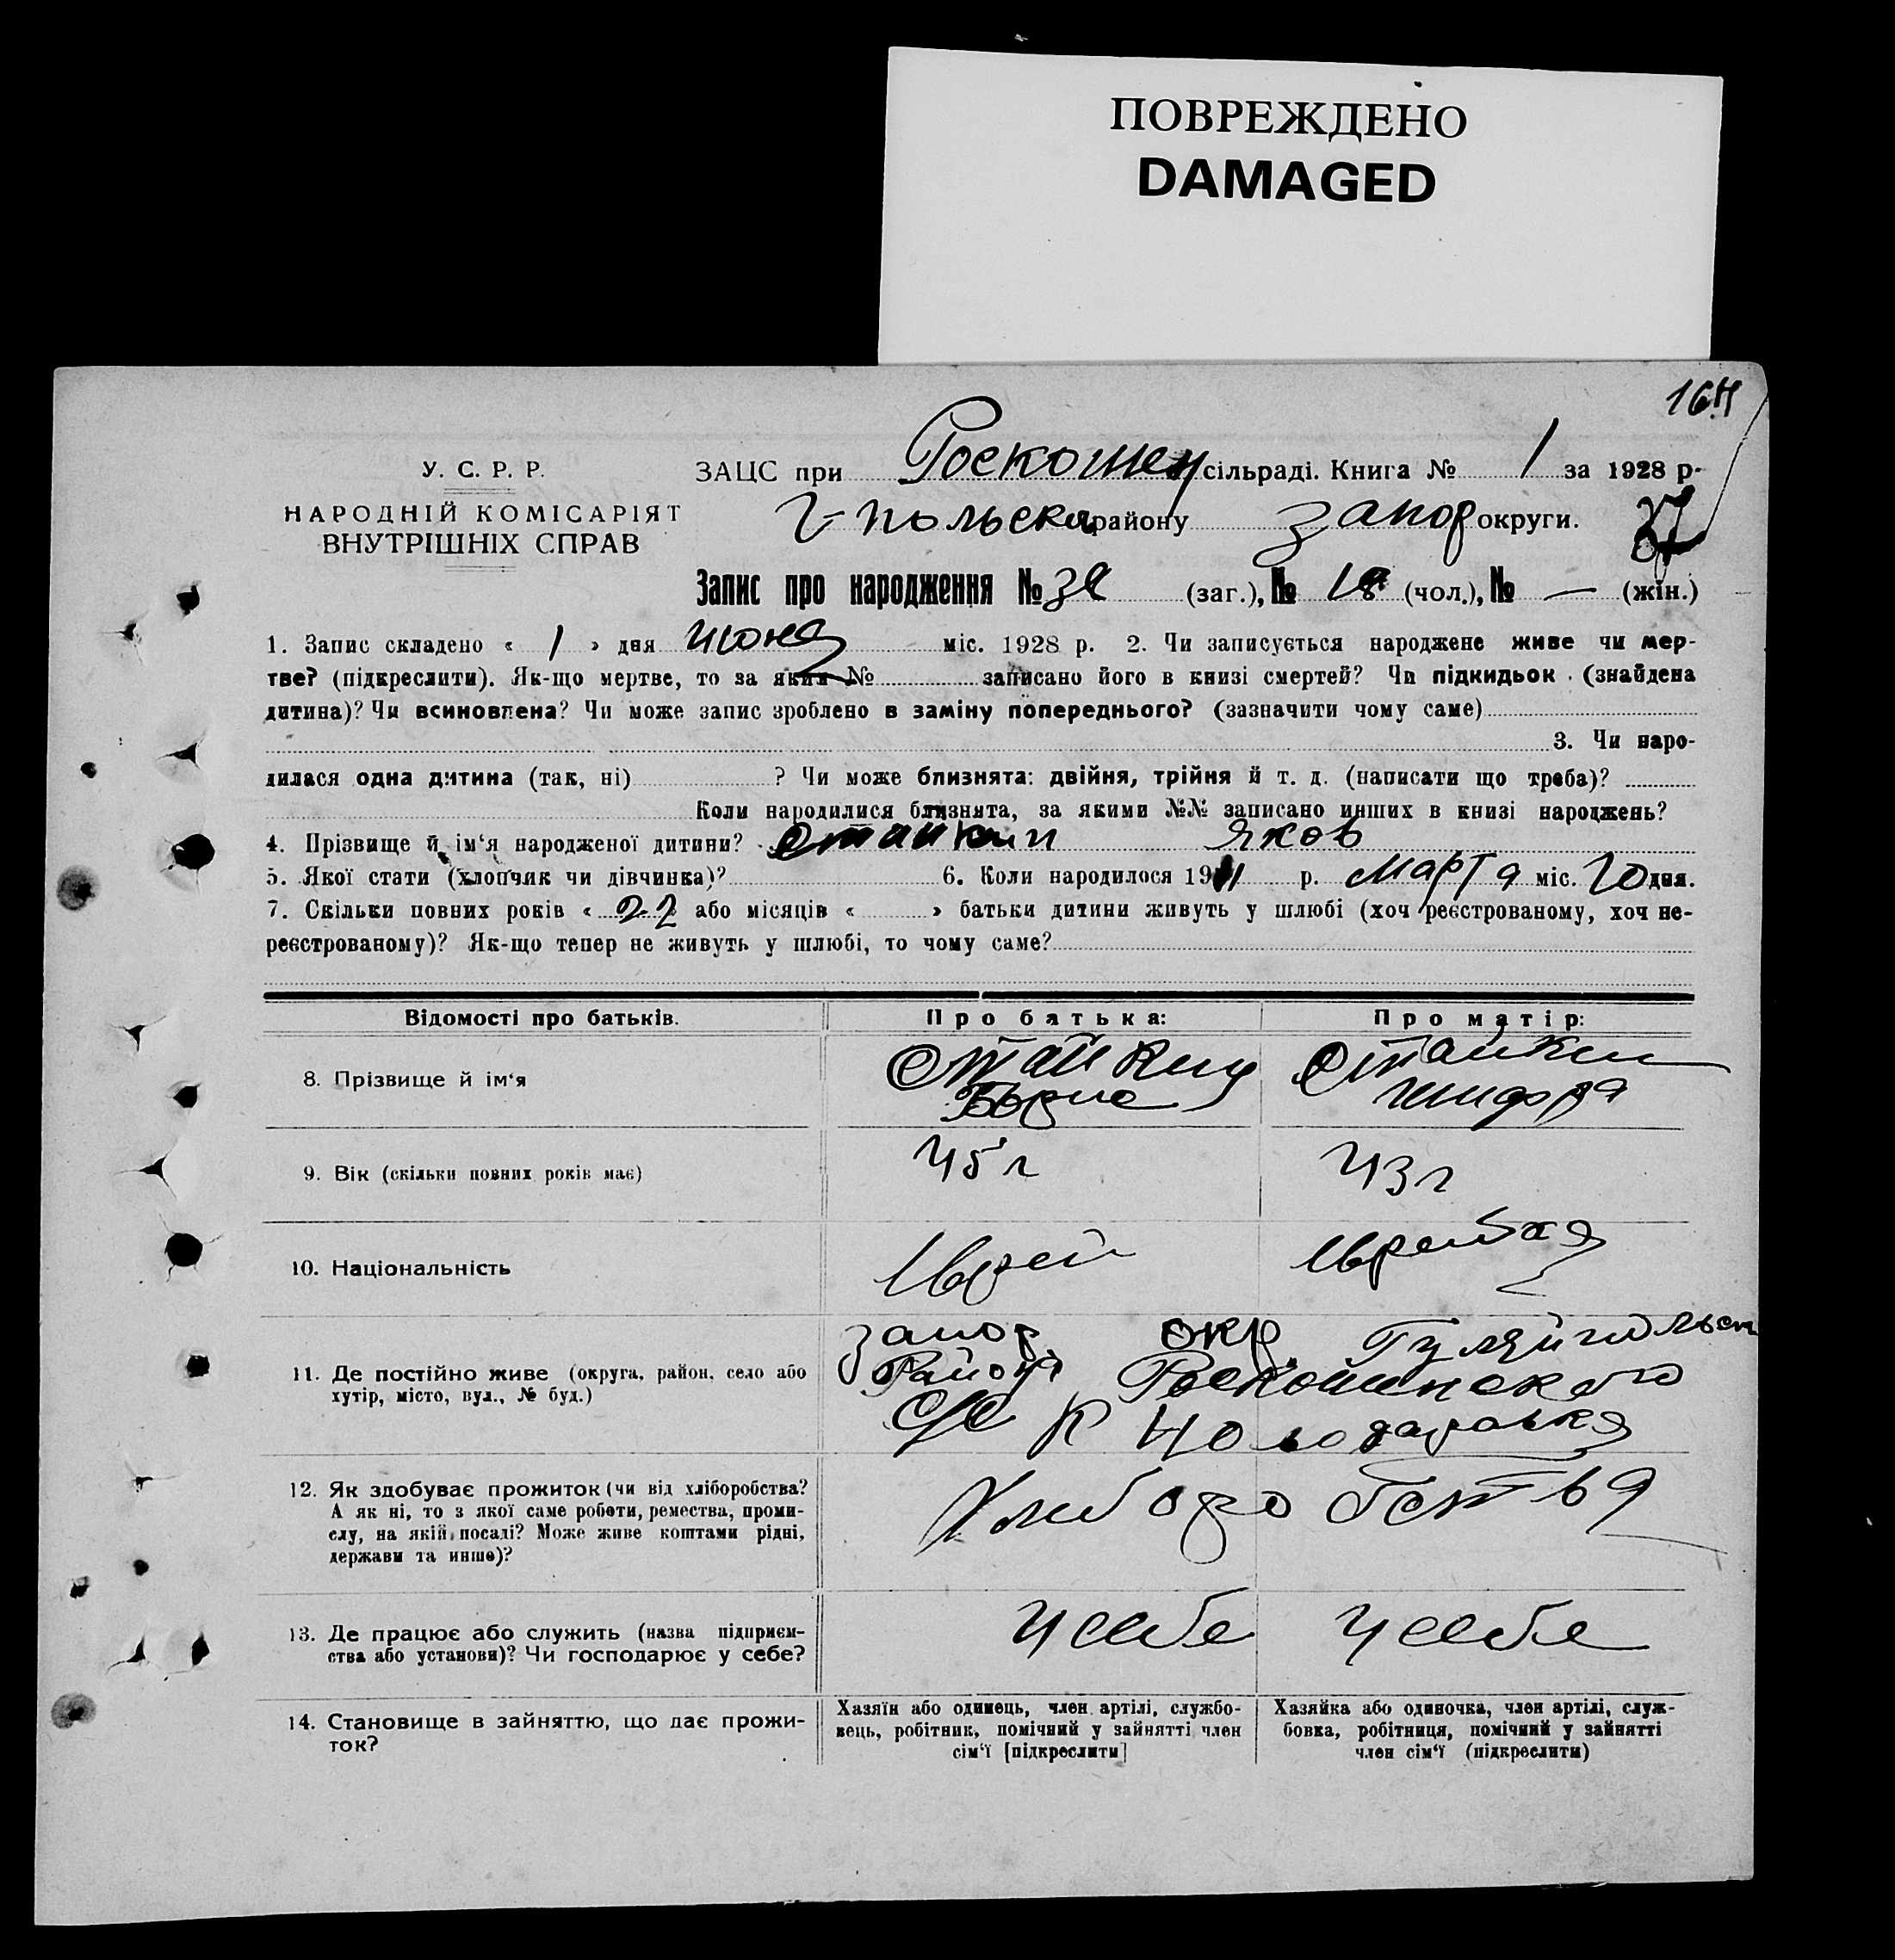 ПОВРЕЖДЕНО
DAMAGED
У. С. Р. Р.
НАРОДНІЙ КОМІСАРІЯТ
ВНУТРІШНІХ СПРАВ
ЗАЦС при Роскошен сільраді. Книга № 1 за 1928 р.
Г-польск району Запор округи.
Запис про народження № (заг.), № 18 (чол.), № — (жін.)
1. Запис складено « 1 » дня июня міс. 1928 р. 2. Чи записується народжене живе чи мер-
тве? (підкреслити). Як-що мертве, то за яким № записано його в книзі смертей? Чи підкидьок (знайдена
дитина)? Чи всиновлена? Чи може запис зроблено в заміну попереднього? (зазначити чому саме)
3. Чи наро-
дилася одна дитина (так, ні) ? Чи може близнята: двійня, трійня й т. д. (написати що треба)?
Коли народилися близнята, за якими №№ записано инших в книзі народжень?
4. Прізвище й ім‘я народженої дитини? Стайкин Яков
5. Якої стати (хлопчик чи дівчинка)? 6. Коли народилося 1911 р. Марта міс. 20 дня.
7. Скільки повних років « 22 » або місяців « » батьки дитини живуть у шлюбі (хоч реєстрованому, хоч не-
реєстрованому)? Як-що тепер не живуть у шлюбі, то чому саме?
Відомості про батьків. Про батька: Про матір:
8. Прізвище й ім‘я Стайкин Стайкин
Шифра
9. Вік (скільки повних років має) 45 г 43 г
10. Національність Іврей Іврейка
11. Де постійно живе (округа, район, село або
хутір, місто, вул., № буд.)
Запор. окр. Гуляйпольск
Района Роскошенского
С/С К
12. Як здобуває прожиток (чи від хліборобства?
А як ні, то з якої саме роботи, ремества, проми-
слу, на якій посаді? Може живе коштами рідні,
держави та инше)?
Хлиборобства
13. Де працює або служить (назва підприєм-
ства або установи)? Чи господарює у себе?
У себе У себе
14. Становище в зайняттю, що дає прожи-
ток?
Хазяїн або одинець, член артілі, службо-
вець, робітник, помічний у зайнятті член
сім‘ї [підкреслити]
Хазяйка або одиночка, член артілі, служ-
бовка, робітниця, помічний у зайнятті
член сім‘ї (підкреслити)